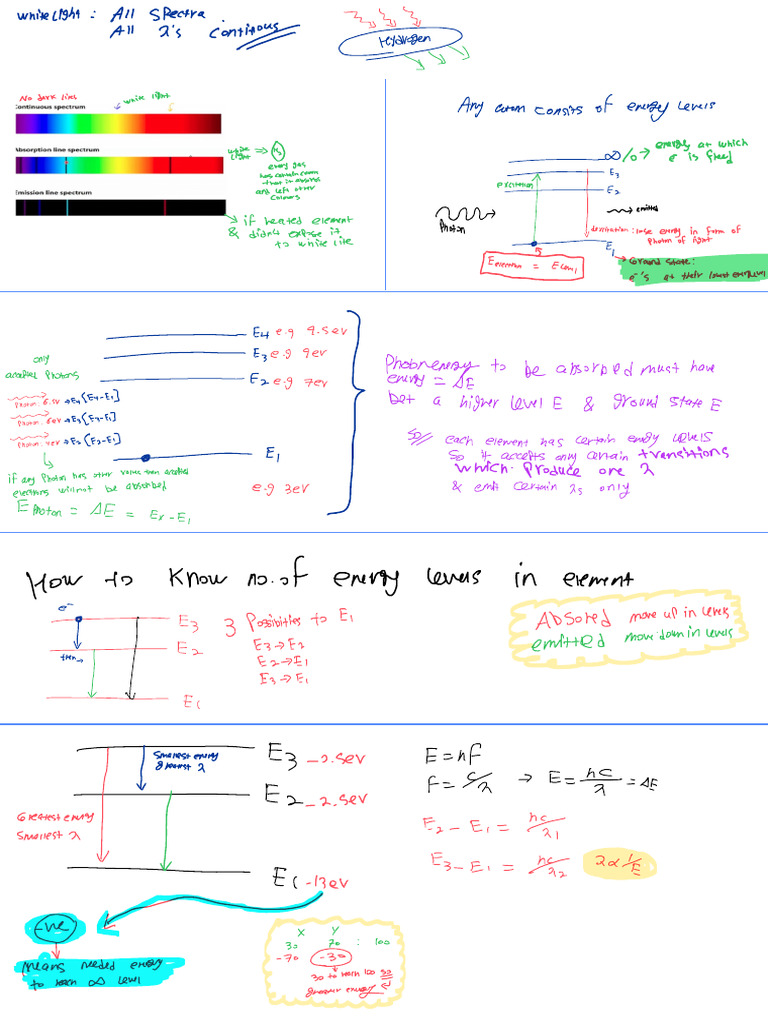 White Light : All Spectra
All λ's Continous
Hydrogen
No dark lines
white light
Continuous spectrum
Absorption line spectrum
Emission line spectrum
white light ⇒ H2
energy gas
has certain
that it absorbs
and left other
colours
→ if heated element
& didn't expose it
to white lite
Any atom consits of energy levels
∞/0 → energy at which
e⁻ is freed
E3
E2
excitation
Photon
emitted
dexcitation : lose energy in form of
Photon of light
E1
E electron = E level
Ground State:
e⁻'s at their lowest
E4 e.g 9.5ev
E3 e.g 9ev
E2 e.g 7ev
E1
e.g 3ev
only
accepted Photons
Photon 6.5v → E4 [E4-E1]
Photon 6ev → E3 [E3-E1]
Photon 4ev → E2 [E2-E1]
if any Photon has other value then accepted
electrons will not be absorbed
E Photon = ΔE = Ex - E1
Photon energy to be absorbed must have
energy = ΔE
bet a higher level E & ground state E
So// each element has certain energy levels
so it accepts only certain transitions
which produce one λ
& emit certain λs only
How to Know no. of energy levels in element
e⁻
E3
E2
then→
E1
3 Possibities to E1
E3→E2
E2→E1
E3→E1
Absored move up in levels
emitted move down in levels
Smallest energy
greatest λ
Greatest energy
Smallest λ
E3
E2 -2.5ev
E1 -13ev
-ve
Means needed energy
to reach ∞ level
E = hf
F = c/λ → E = hc/λ = ΔE
E2 - E1 = hc/λ1
E3 - E1 = hc/λ2
λ∝ 1/E
X Y
30 70 : 100
-70 -30
30 to reach 100 so
greater energy